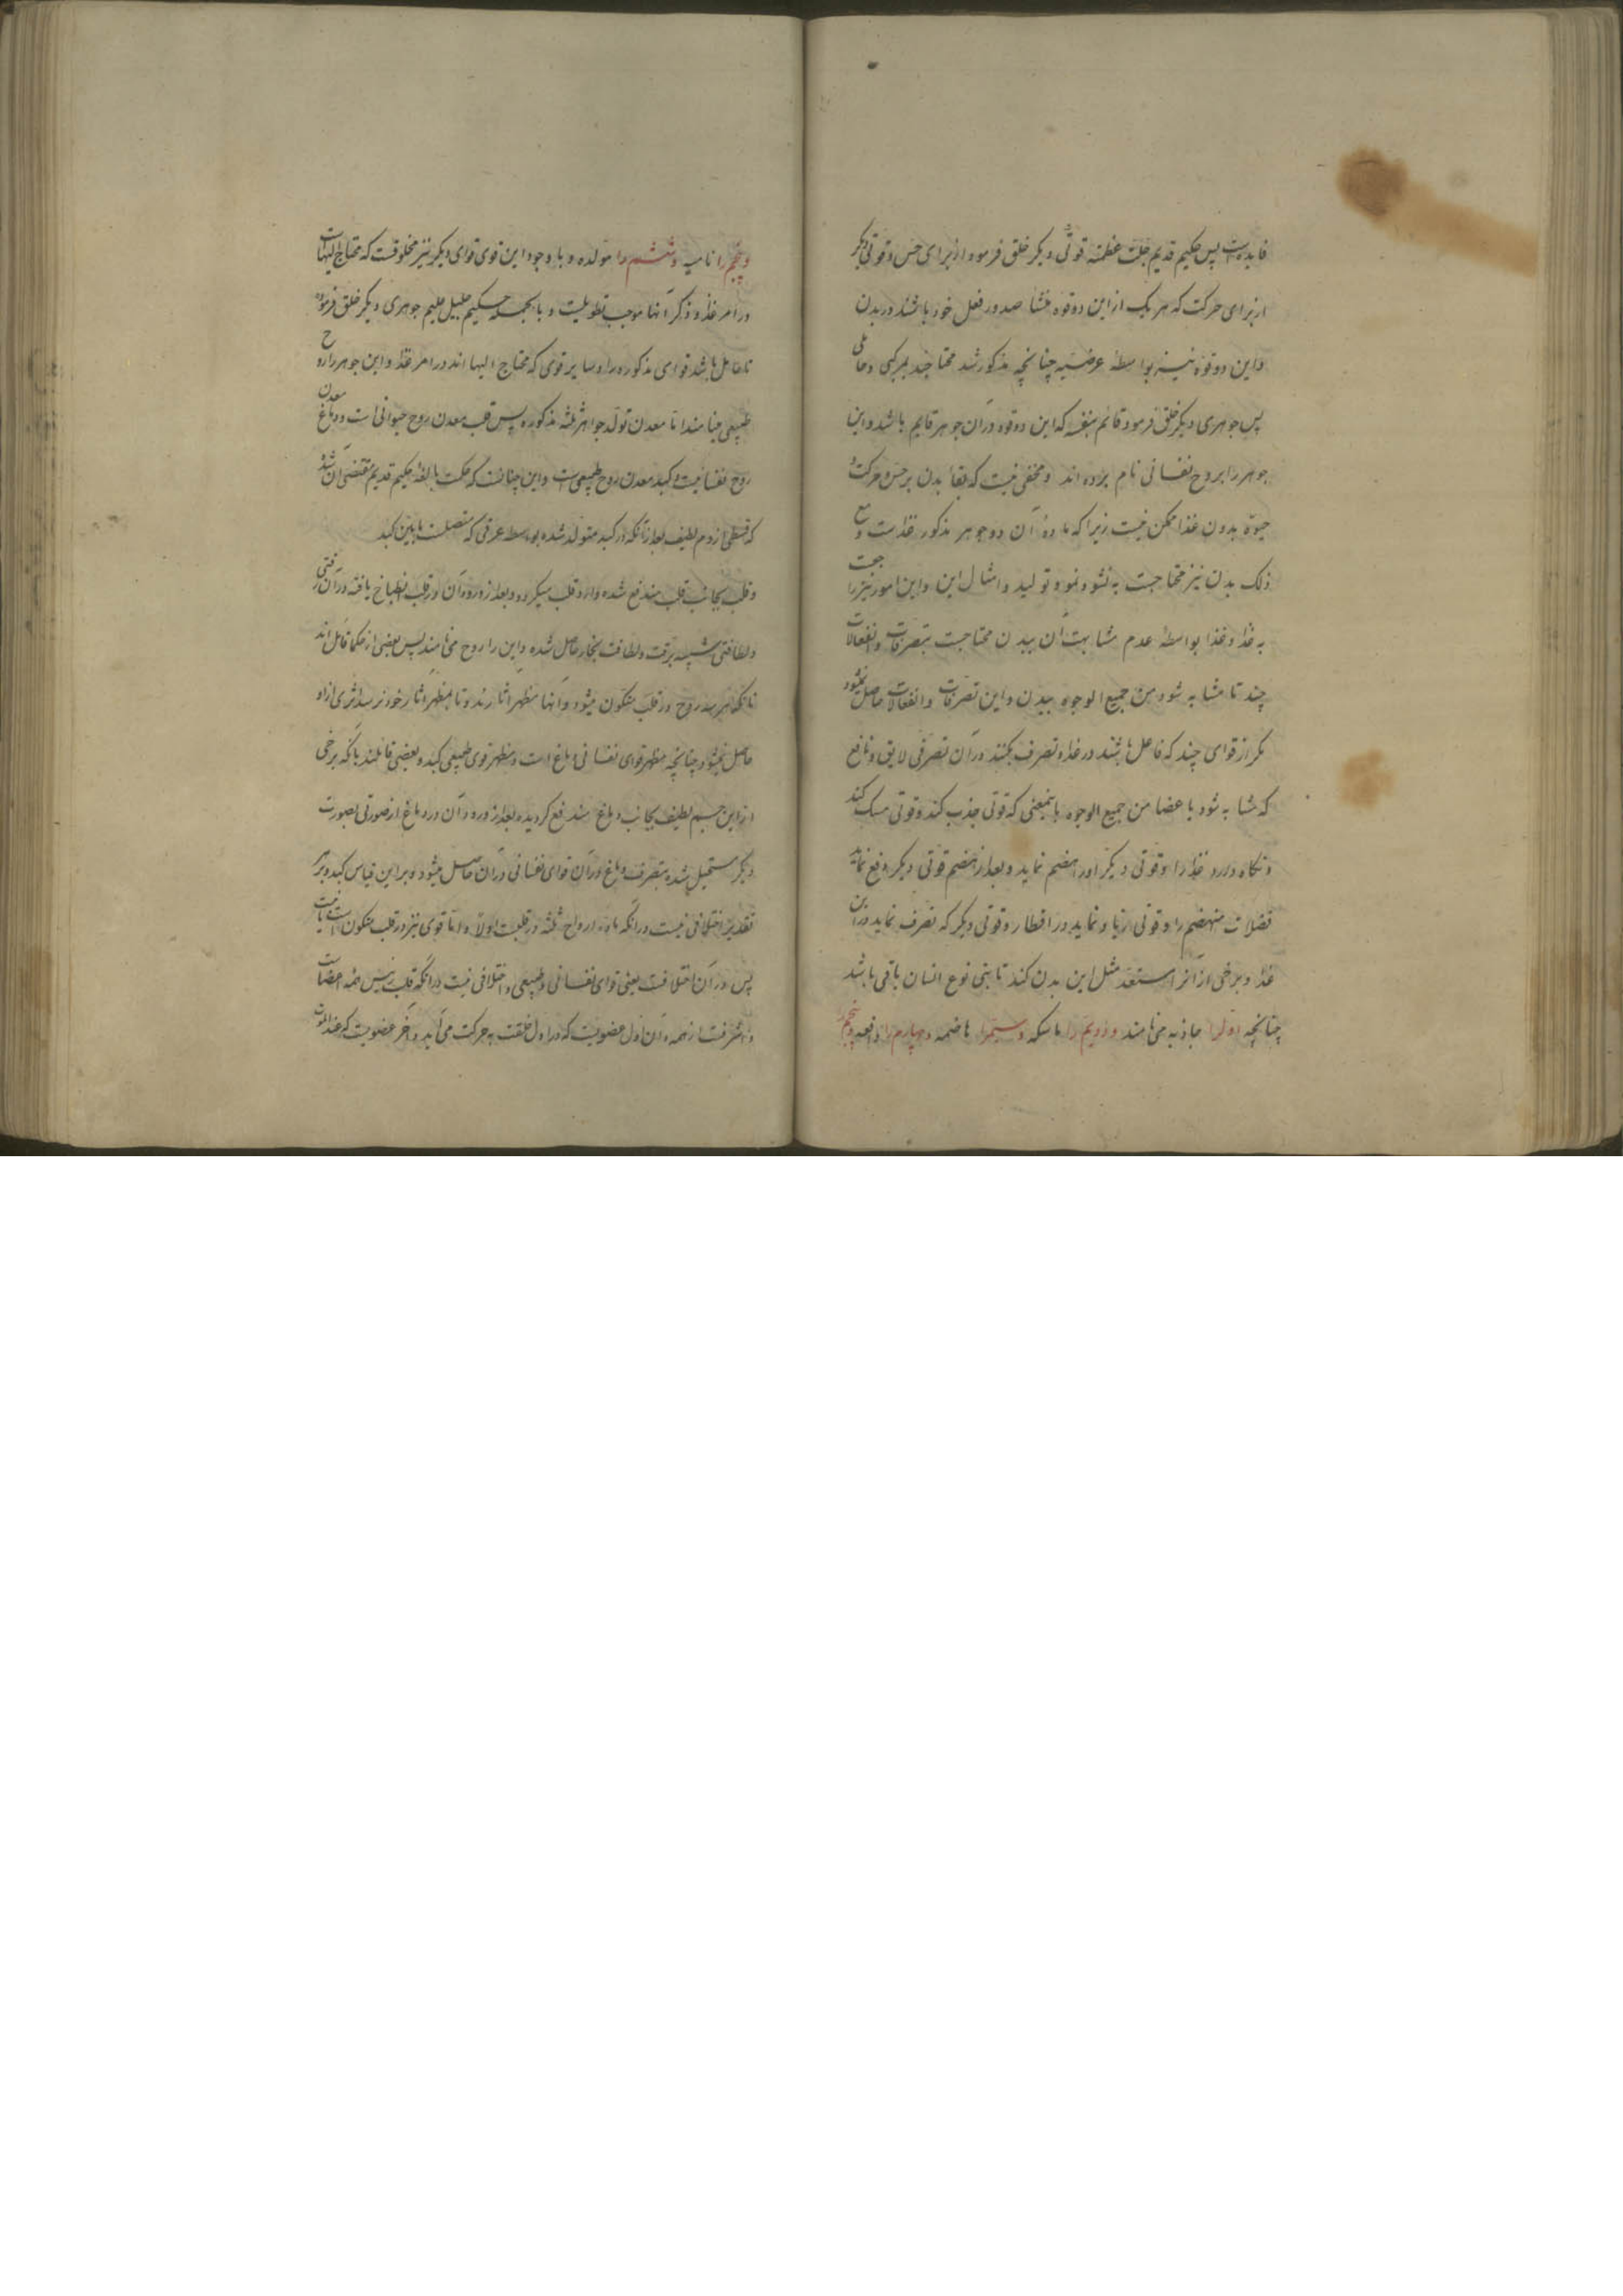 فایده است پس حکیم قدیم جلت عظمته قوتی دیگر خلق فرمود از برای حس و قوتی دیگر
از برای حرکت که هر یک از این دو قوه منشا صدور فعل خود باشند در بدن
و این دو قوه نیز بواسطه عرضیه چنانچه مذکور شد محتاجند بمرکبی و حاملی
پس جوهری دیگر خلق فرمود قائم بنفسه که این دو قوه در آن جوهر قایم باشد و این
جوهر را بروح نفسانی نام برده اند و مخفی نیست که بقاء بدن بر حس و حرکت و
حیوة بدون غذا ممکن نیست زیرا که ماده آن دو جوهر مذکور غذاست و مع
ذلک بدن نیز محتاجست به نشو و نمو و تولید و امثال این و این امور نیز را جعت
به غذا و غذا بواسطه عدم مشابهت آن ببدن محتاجست بتصرفات و انفعالات
چند تا مشابه شود من جمیع الوجوه ببدن و این تصرفات و انفعالات حاصل نمیشود
مگر از قوای چند که فاعل باشند در غذا و تصرف بکنند در آن تصرفی لایق و نافع
که مشابه شود با عضا من جمیع الوجوه باینمعنی که قوتی جذب کند و قوتی مسک کند
و نگاه دارد غذا را و قوتی دیگر او را هضم نماید و بعد از هضم قوتی دیگر دفع نماید
فضلات منهضم را و قوتی زیاد نماید در اقطار و قوتی دیگر که تصرف نماید در این
غذا و برخی از آنرا مستعد مثل این بدن کند تا بنی نوع انسان باقی باشد
چنانچه اولرا جاذبه می نامند و دویم را ماسکه و سیمرا هاضمه و چهارم را دافعه و پنجم را
و پنجم را نامیه و ششم را مولده و با وجود این قوی قوای دیگر نیز مخلوقست که محتاج الیهاست
در امر غذا و ذکر آنها موجب تطویلست و بالجمله حکیم جلیل علیم جوهری دیگر خلق فرموده
تا حامل باشد قوای مذکوره را و سایر قوی که محتاج الیها اند در امر غذا و این جوهر را روح
طبیعی مینامند اما معدن تولد جواهر ثلثه مذکوره پس قلب معدن روح حیوانی است و دماغ معدن
روح نفسانیست و کبد معدن روح طبیعی است و این چنانست که حکمت بالغه حکیم قدیم مقتضی آن شد
که قسطی از دم لطیف بعد از آنکه در کبد متولد شده بواسطه عرقی که متصلست مابین کبد
و قلب بجانب قلب مندفع شده وارد قلب میگردد و بعد از ورود آن در قلب انطباخ یافته در آن رقتی
و لطافتی شبیه برقت و لطافت بخار حاصل شده و این را روح می نامند پس بعضی از حکما قائل اند
تا آنکه هر سه روح در قلب متکون میشود و آنها مظهر آثار ندارند و تا بمظهر آثار خود نرسد اثری از او
حاصل نمیشود چنانچه مظهر قوای نفسانی دماغ است و مظهر قوی طبیعی کبد و بعضی قائلند بآنکه برخی
از این جسم لطیف بجانب دماغ مندفع گردیده بعد از ورود آن در دماغ از صورتی بصورت
دیگر مستحیل شده بتصرف دماغ در آن قوای نفسانی در آن حاصل میشود و بر این قیاس کبد و بهر
تقدیر اختلافی نیست در آنکه ماده ارواح ثلثه در قلبست اولا و اما قوی نیز در قلب متکون است یا نیست
پس در آن اختلافست یعنی قوای نفسانی و طبیعی و اختلافی نیست در آنکه قلب رئیس همه اعضاست
و اشرفست از همه و آن اول عضویست که در اول خلقت به حرکت می آید و آخر عضویست که عند الموت